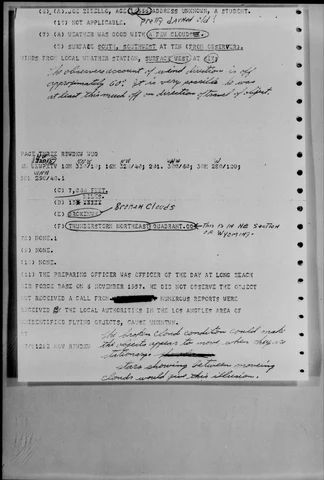 (3) (A). JOE ZITELLO, AGE ADDRESS UNKNOWN, A STUDENT.
(B) NOT APPLICABLE. pretty darned old!
(7) (A) WEATHER WAS GOOD WITH A FEW CLOUDS.
(B) SURFACE SOUTH, SOUTHWEST AT TEN (FROM OBSERVER),
WINDS FROM LOCAL WEATHER STATION, SURFACE WEST AT
The observers account of wind direction is off
approximately 60°. It is very possible he was
at least this much off on direction of travel of object.
PAGE THREE RJWDKW WUD
(C) FEET.
MILES
(D) 15
(E) BROKEN Broken Clouds
(F) THUNDERSTORM NORTHEAST QUADRANT.CO This is in NE section
or Wyoming.
NONE.
NONE.
(11) THE PREPARING OFFICER WAS OFFICER OF THE DAY AT LONG BEACH
AIR FORCE BASE ON 6 NOVEMBER 1957. HE DID NOT OBSERVE THE OBJECT
BUT RECEIVED A CALL FROM NUMEROUS REPORTS WERE
RECEIVED BY THE LOCAL AUTHORITIES IN THE LOS ANGLES AREA OF
UNIDENTIFIED FLYING OBJECTS, CAUSE UNKNOWN.
The broken cloud condition could make
the objects appear to move when they are
NOV RJWDKW stationary.
stars showing between moveing
clouds would give this illusion.